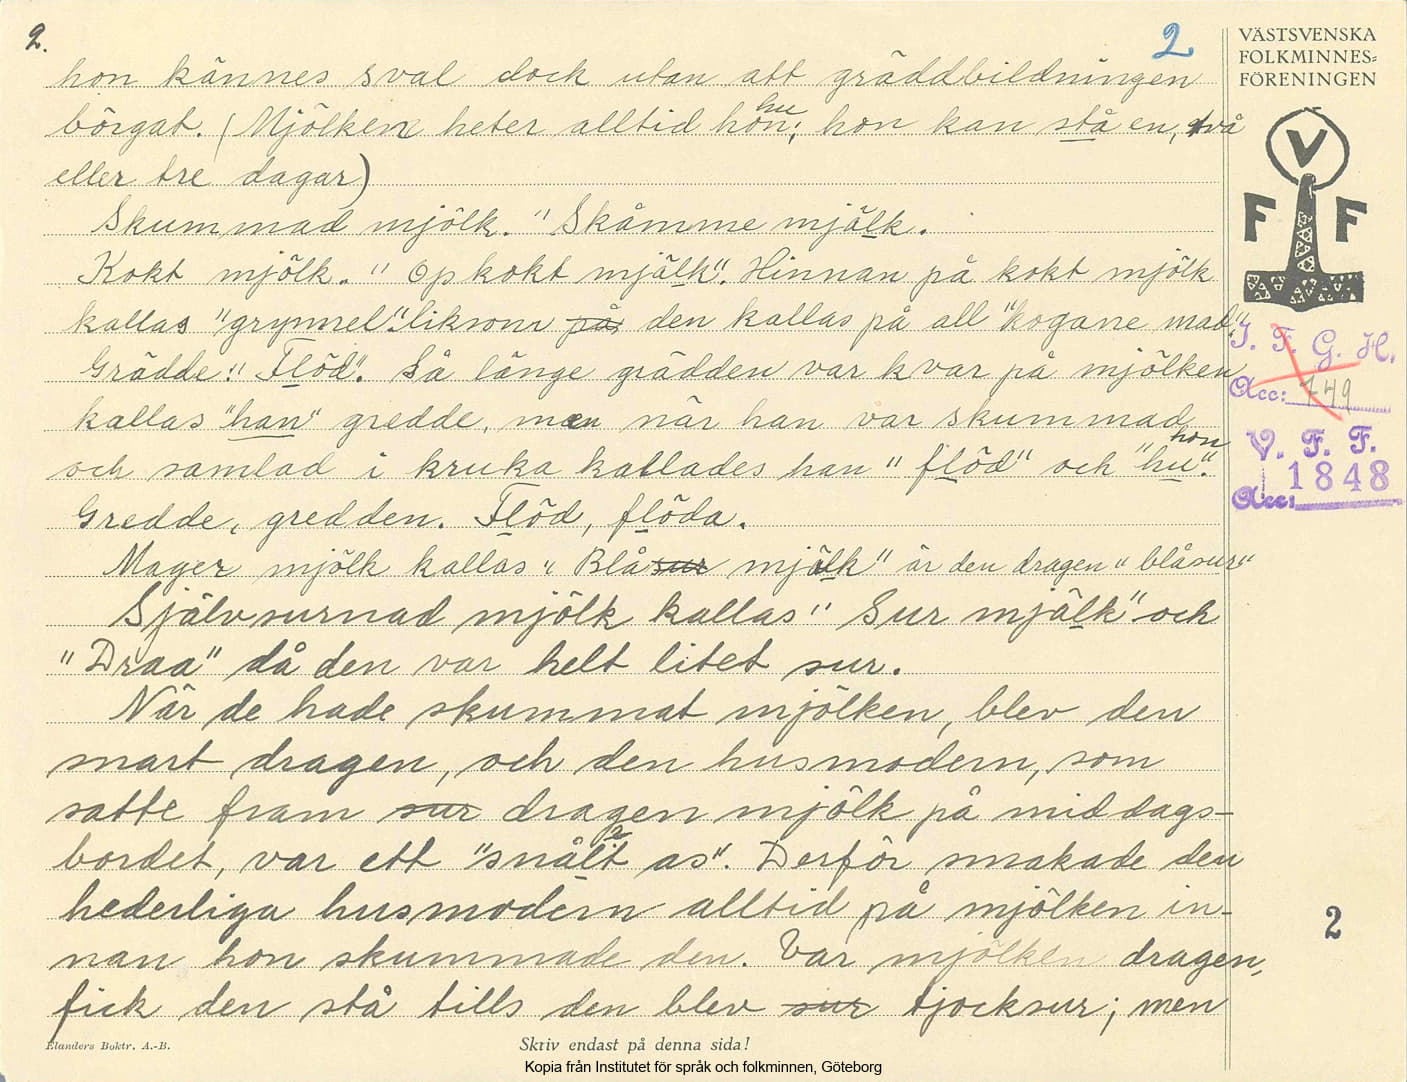 2.
2
VÄSTSVENSKA
FOLKMINNES-
FÖRENINGEN
V
F F
hon kännes sval dock utan att gräddbildningen
börgat. (Mjölken heter alltid hon, hu; hon kan stå en, två
eller tre dagar)
Skummad mjölk. "Skåmme mjälk.
Kokt mjölk. " Opkokt mjälk". Hinnan på kokt mjölk
kallas "grynnel" liksom på den kallas på all "kogane mad".
Grädde: "Flöd". Så länge grädden var kvar på mjölken
kallas "han" gredde, men när han var skummad
och samlad i kruka kallades han "flöd" och "hu". hon
Gredde, gredden. Flöd, flöda.
Mager mjölk kallas "Blåsur mjälk" är den dragen "blåsur"
Självsurnad mjölk kallas "Sur mjälk" och
"Draa" då den var helt litet sur.
När de hade skummat mjölken, blev den
snart dragen, och den husmodern, som
satte fram sur dragen mjölk på middags-
bordet, var ett "snålt as". Derför smakade den
hederliga husmodern alltid på mjölken in-
nan hon skummade den. Var mjölken dragen,
fick den stå tills den blev sur tjocksur; men
I. F. G. H.
Acc: 749
V. F. F.
1848
Acc:
2
Elanders Boktr. A.-B.
Skriv endast på denna sida!
Kopia från Institutet för språk och folkminnen, Göteborg